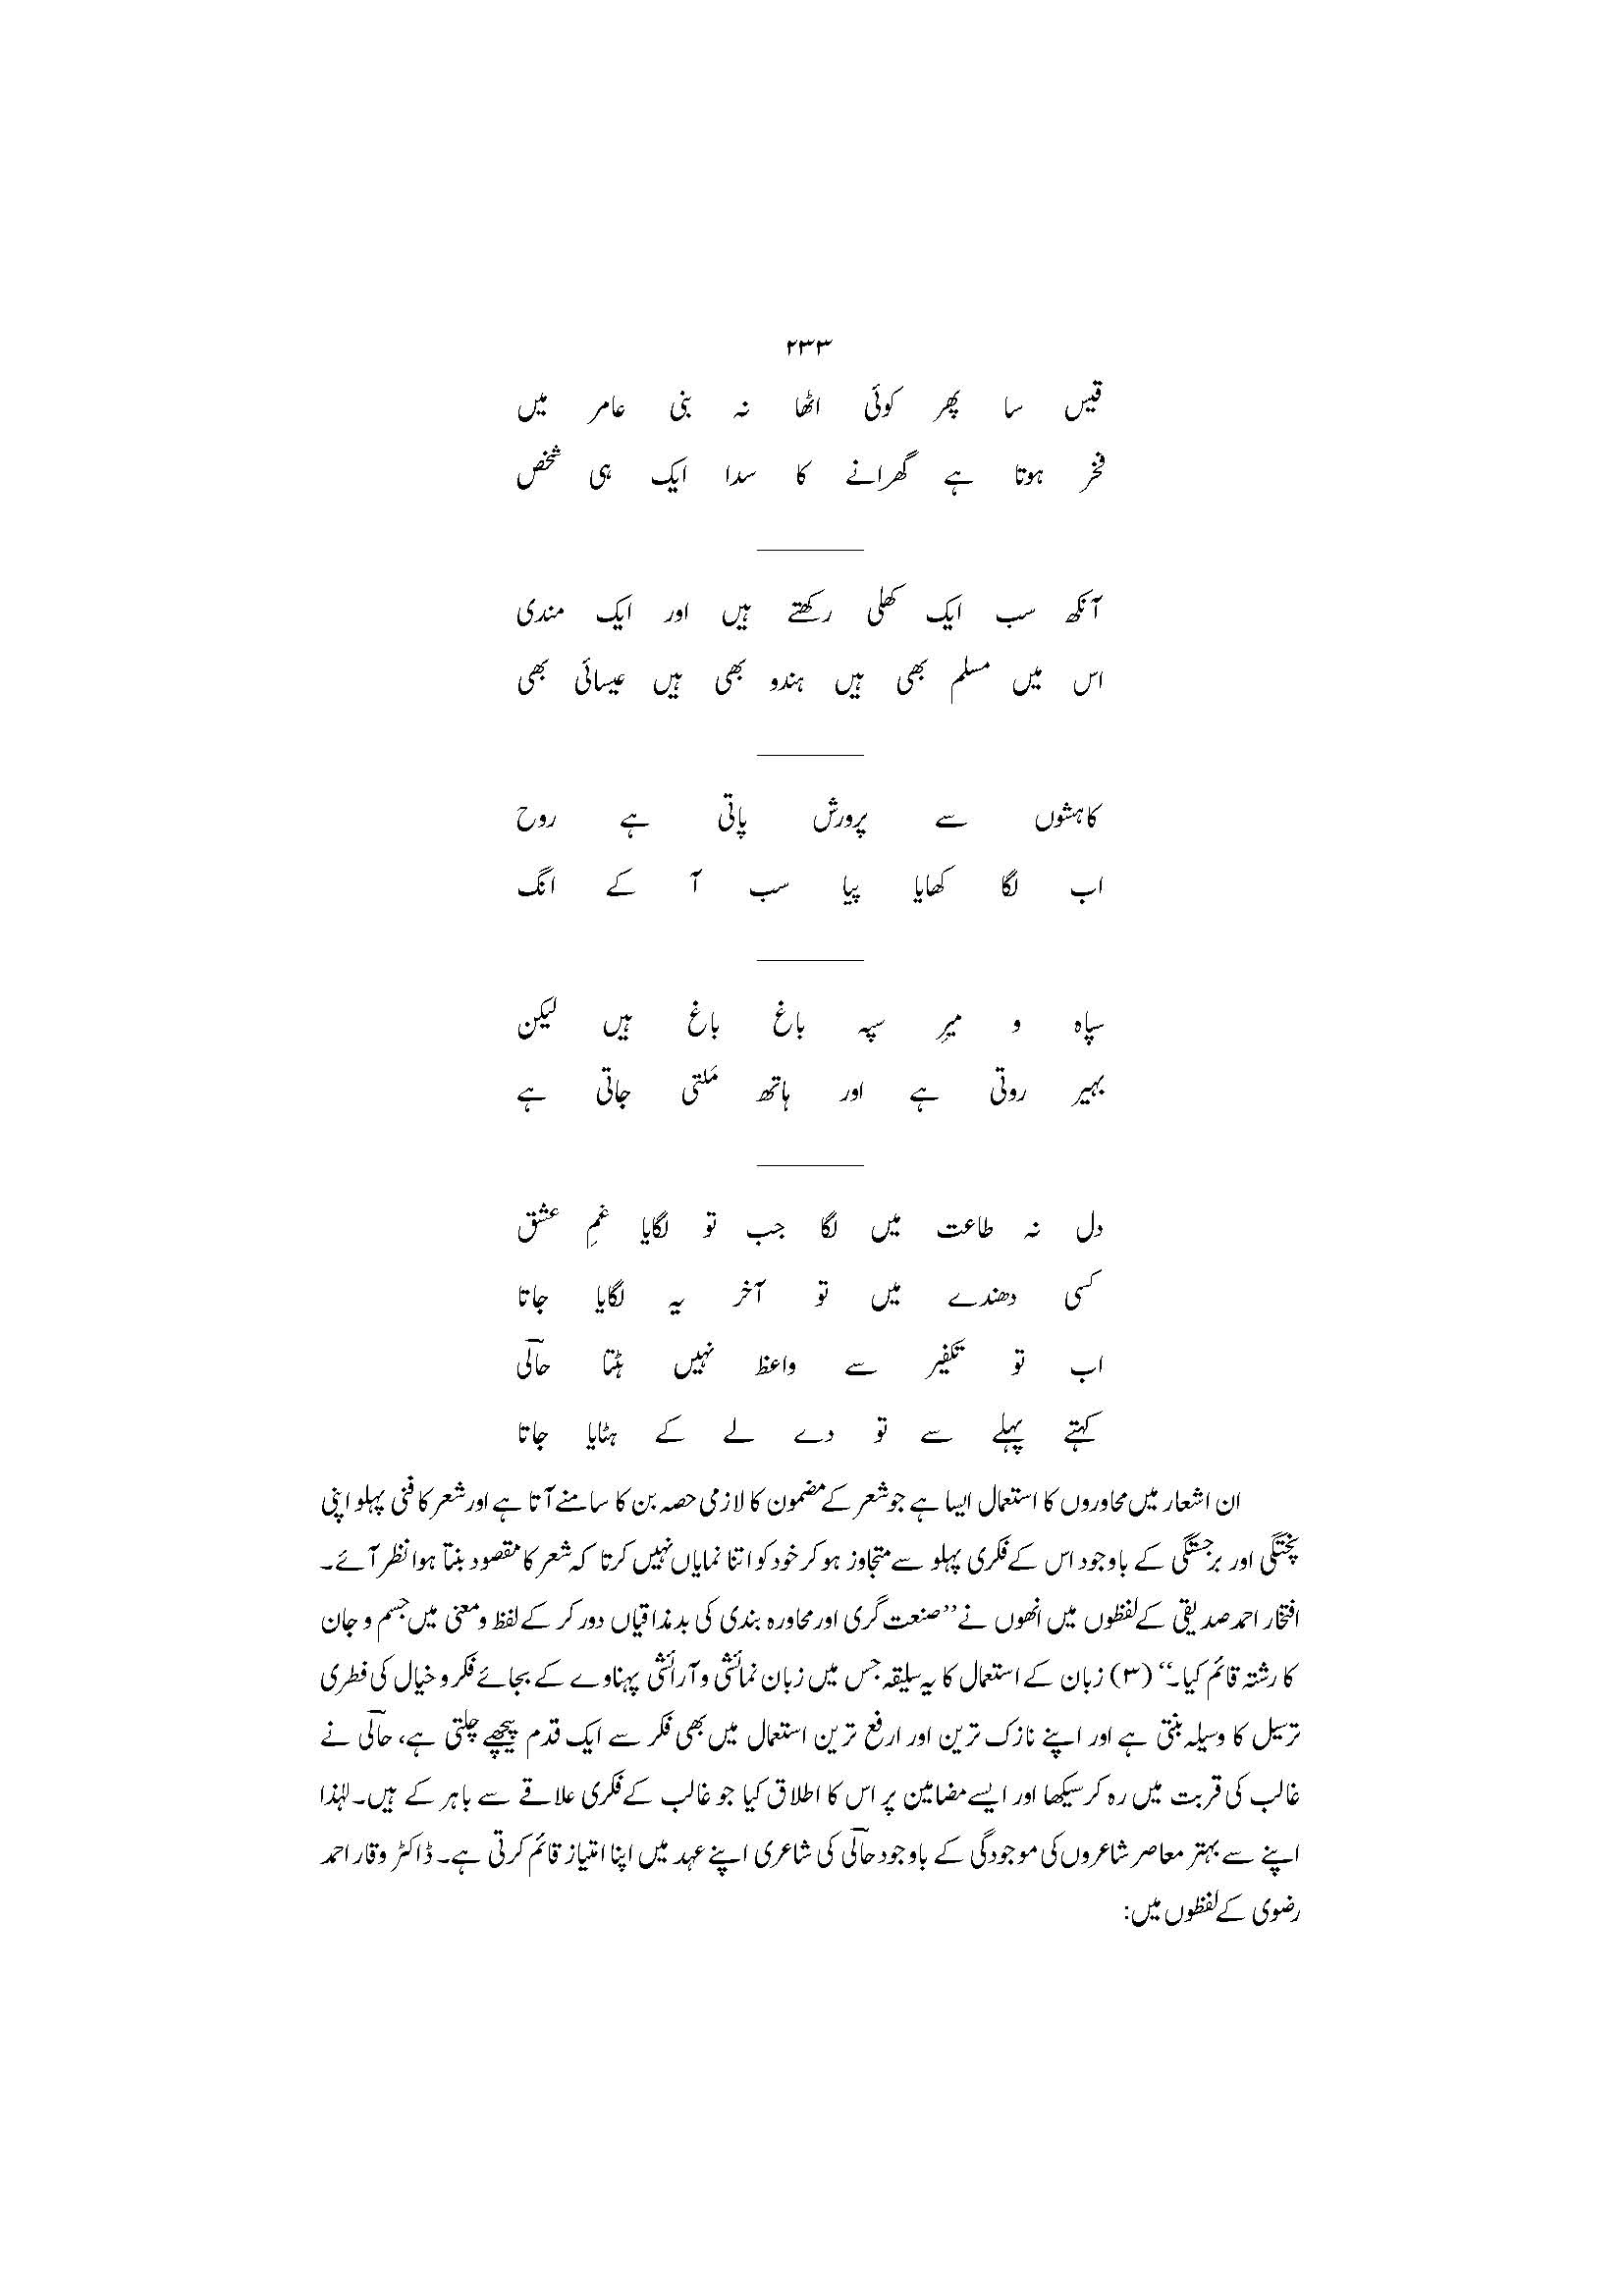 ۲۳۳
قیس سا پھر کوئی اٹھا نہ بنی عامر میں
فخر ہوتا ہے گھرانے کا سدا ایک ہی شخص
آنکھ سب ایک کھلی رکھتے ہیں اور ایک مندی
اس میں مسلم بھی ہیں ہندو بھی ہیں عیسائی بھی
کاہشوں سے پرورش پاتی ہے روح
اب لگا کھایا پیا سب آ کے انگ
سپاہ و میرِ سپہ باغ باغ ہیں لیکن
بہیر روتی ہے اور ہاتھ مَلتی جاتی ہے
دل نہ طاعت میں لگا جب تو لگایا غمِ عشق
کسی دھندے میں تو آخر یہ لگایا جاتا
اب تو تکفیر سے واعظ نہیں ہٹتا حالؔی
کہتے پہلے سے تو دے لے کے ہٹایا جاتا
ان اشعار میں محاوروں کا استعمال ایسا ہے جو شعر کے مضمون کا لازمی حصہ بن کا سامنے آتا ہے اور شعر کا فنی پہلو اپنی
پختگی اور برجستگی کے باوجود اس کے فکری پہلو سے متجاوز ہو کر خود کو اتنا نمایاں نہیں کرتا کہ شعر کا مقصود بنتا ہوا نظر آئے۔
افتخار احمد صدیقی کے لفظوں میں انھوں نے ’’صنعت گری اور محاورہ بندی کی بدمذاقیاں دور کر کے لفظ و معنی میں جسم و جان
کا رشتہ قائم کیا۔‘‘ (۳) زبان کے استعمال کا یہ سلیقہ جس میں زبان نمائشی و آرائشی پہناوے کے بجائے فکر و خیال کی فطری
ترسیل کا وسیلہ بنتی ہے اور اپنے نازک ترین اور ارفع ترین استعمال میں بھی فکر سے ایک قدم پیچھے چلتی ہے، حالؔی نے
غالب کی قربت میں رہ کر سیکھا اور ایسے مضامین پر اس کا اطلاق کیا جو غالب کے فکری علاقے سے باہر کے ہیں۔ لہٰذا
اپنے سے بہتر معاصر شاعروں کی موجودگی کے باوجود حالؔی کی شاعری اپنے عہد میں اپنا امتیاز قائم کرتی ہے۔ ڈاکٹر وقار احمد
رضوی کے لفظوں میں: